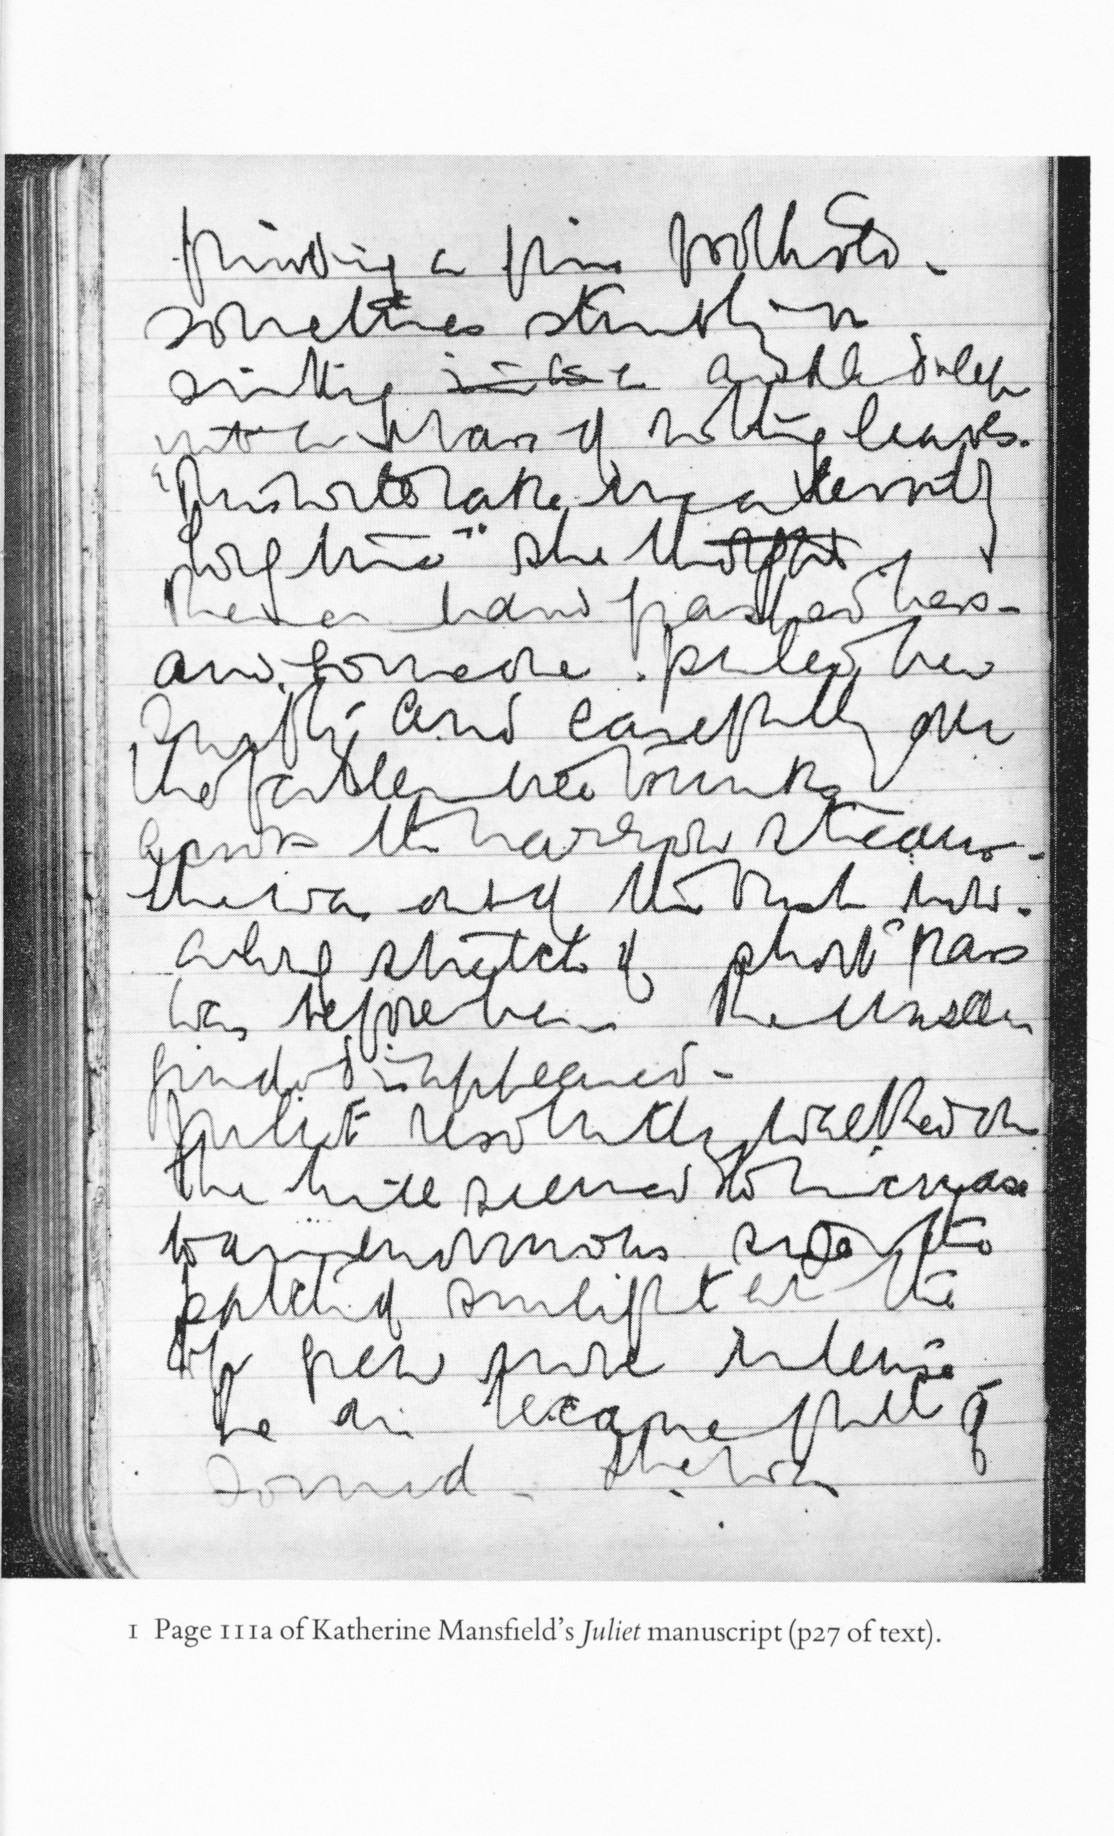 finding a firm foothold -
sometimes stumbling
sinking ankle deep
into a mass of rotting leaves.
"This will take me an eternity
long time" she thought
Then a hand grasped hers -
and someone pulled her
swiftly and carefully over
the fallen tree trunks
across the narrow stream -
She was out of the bush now.
a long stretch of short grass
was before her. The unseen
guide disappeared -
Juliet resolutely walked on
The hill seemed to increase
to an enormous size. The
patch of sunlight at the
top grew more intense
the air became full of
sound - She was
1 Page 111a of Katherine Mansfield's Juliet manuscript (p27 of text).